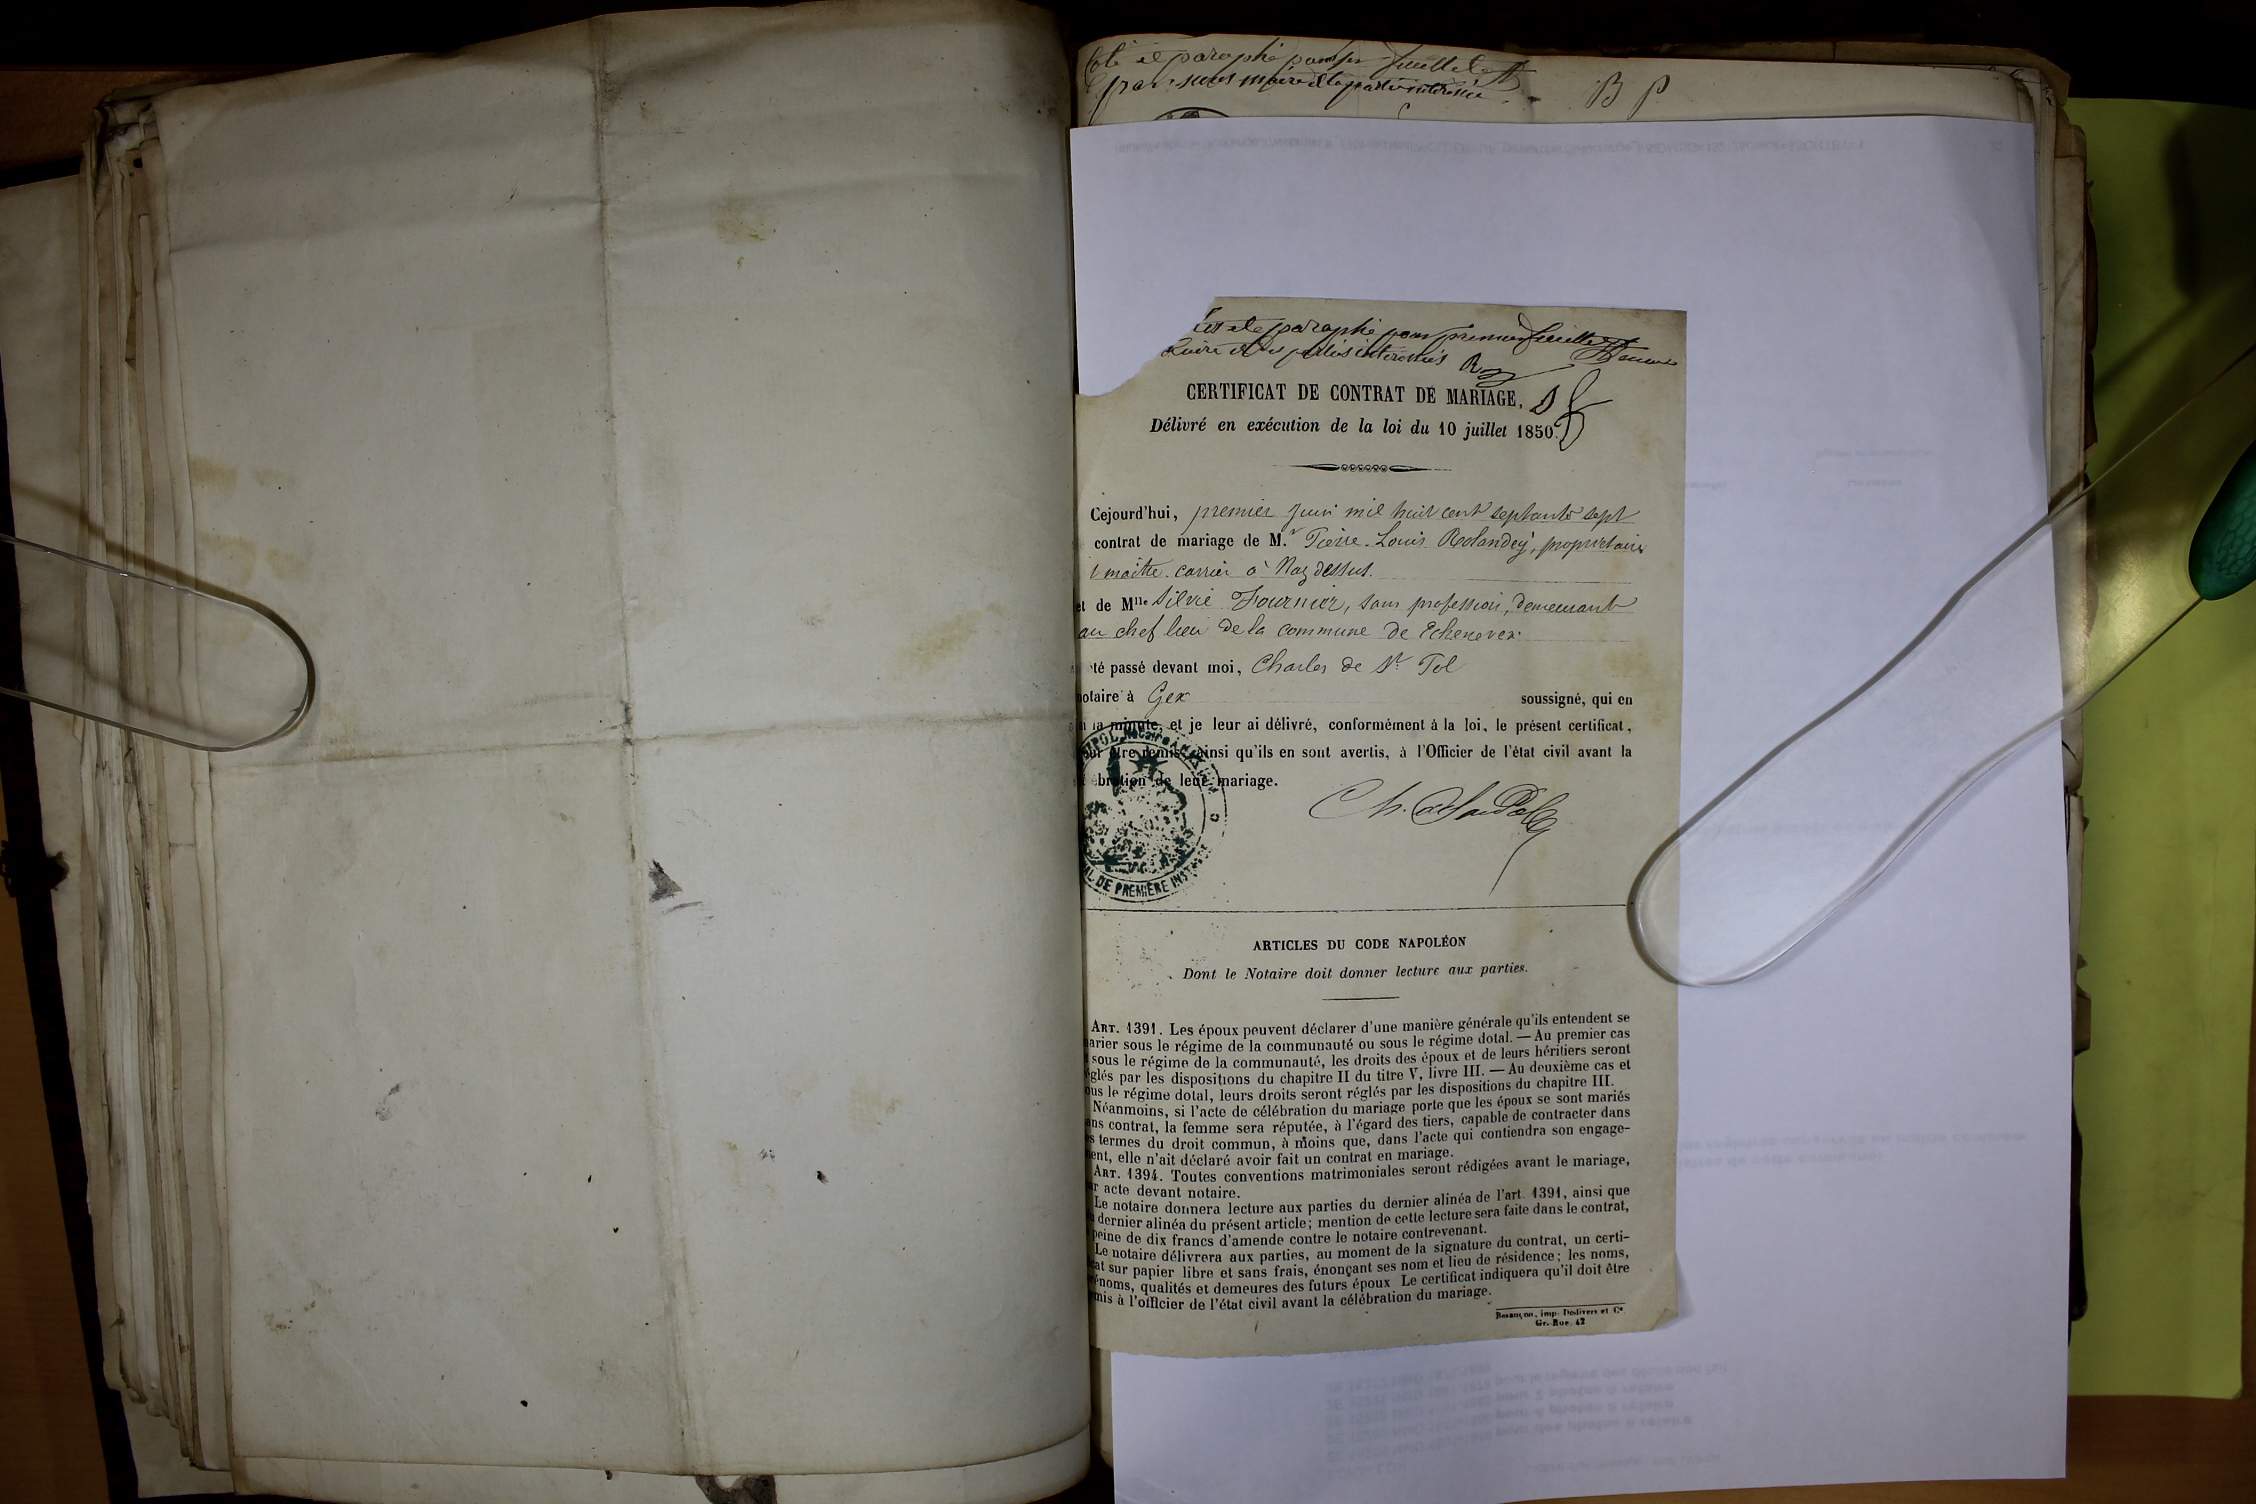 Coté et paraphé par feuillet
B P
et paraphé pour premier feuillet
maire et les parties intéressées
CERTIFICAT DE CONTRAT DE MARIAGE,
Délivré en exécution de la loi du 10 juillet 1850.
Cejourd'hui, premier juin mil huit cent septante sept
contrat de mariage de M.r Pierre-Louis Rolandey, propriétaire
maître carrier à Naz dessus.
et de Mlle Silvie Fournier, sans profession, demeurant
au chef lieu de la commune de Echenevex.
té passé devant moi, Charles de St Pol
notaire à Gex soussigné, qui en
la minute, et je leur ai délivré, conformément à la loi, le présent certificat,
être remis, ainsi qu'ils en sont avertis, à l'Officier de l'état civil avant la
bration de leur mariage.
POL Notaire à
DE PREMIÈRE INST
ARTICLES DU CODE NAPOLÉON
Dont le Notaire doit donner lecture aux parties.
ART. 1391. Les époux peuvent déclarer d'une manière générale qu'ils entendent se
arier sous le régime de la communauté ou sous le régime dotal. — Au premier cas
sous le régime de la communauté, les droits des époux et de leurs héritiers seront
glés par les dispositions du chapitre II du titre V, livre III. — Au deuxième cas et
ous le régime dotal, leurs droits seront réglés par les dispositions du chapitre III.
Néanmoins, si l'acte de célébration du mariage porte que les époux se sont mariés
ans contrat, la femme sera réputée, à l'égard des tiers, capable de contracter dans
s termes du droit commun, à moins que, dans l'acte qui contiendra son engage-
ent, elle n'ait déclaré avoir fait un contrat en mariage.
ART. 1394. Toutes conventions matrimoniales seront rédigées avant le mariage,
r acte devant notaire.
Le notaire donnera lecture aux parties du dernier alinéa de l'art. 1391, ainsi que
dernier alinéa du présent article; mention de cette lecture sera faite dans le contrat,
peine de dix francs d'amende contre le notaire contrevenant.
Le notaire délivrera aux parties, au moment de la signature du contrat, un certi-
cat sur papier libre et sans frais, énonçant ses nom et lieu de résidence; les noms,
énoms, qualités et demeures des futurs époux Le certificat indiquera qu'il doit être
mis à l'officier de l'état civil avant la célébration du mariage.
Besançon, imp. Dodivers et Ce
Gr.-Rue, 42